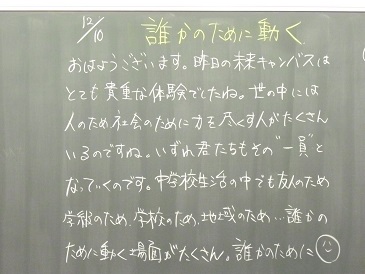 12/10 誰かのために動く
おはようございます。昨日の未来キャンパスは
とても貴重な体験でしたね。世の中には
人のため、社会のために力を尽くす人がたくさん
いるのですね。いずれ君たちもその"一員"と
なっていくのです。中学校生活の中でも友人のため
学級のため、学校のため、地域のため…誰かの
ために動く場面がたくさん。誰かのために